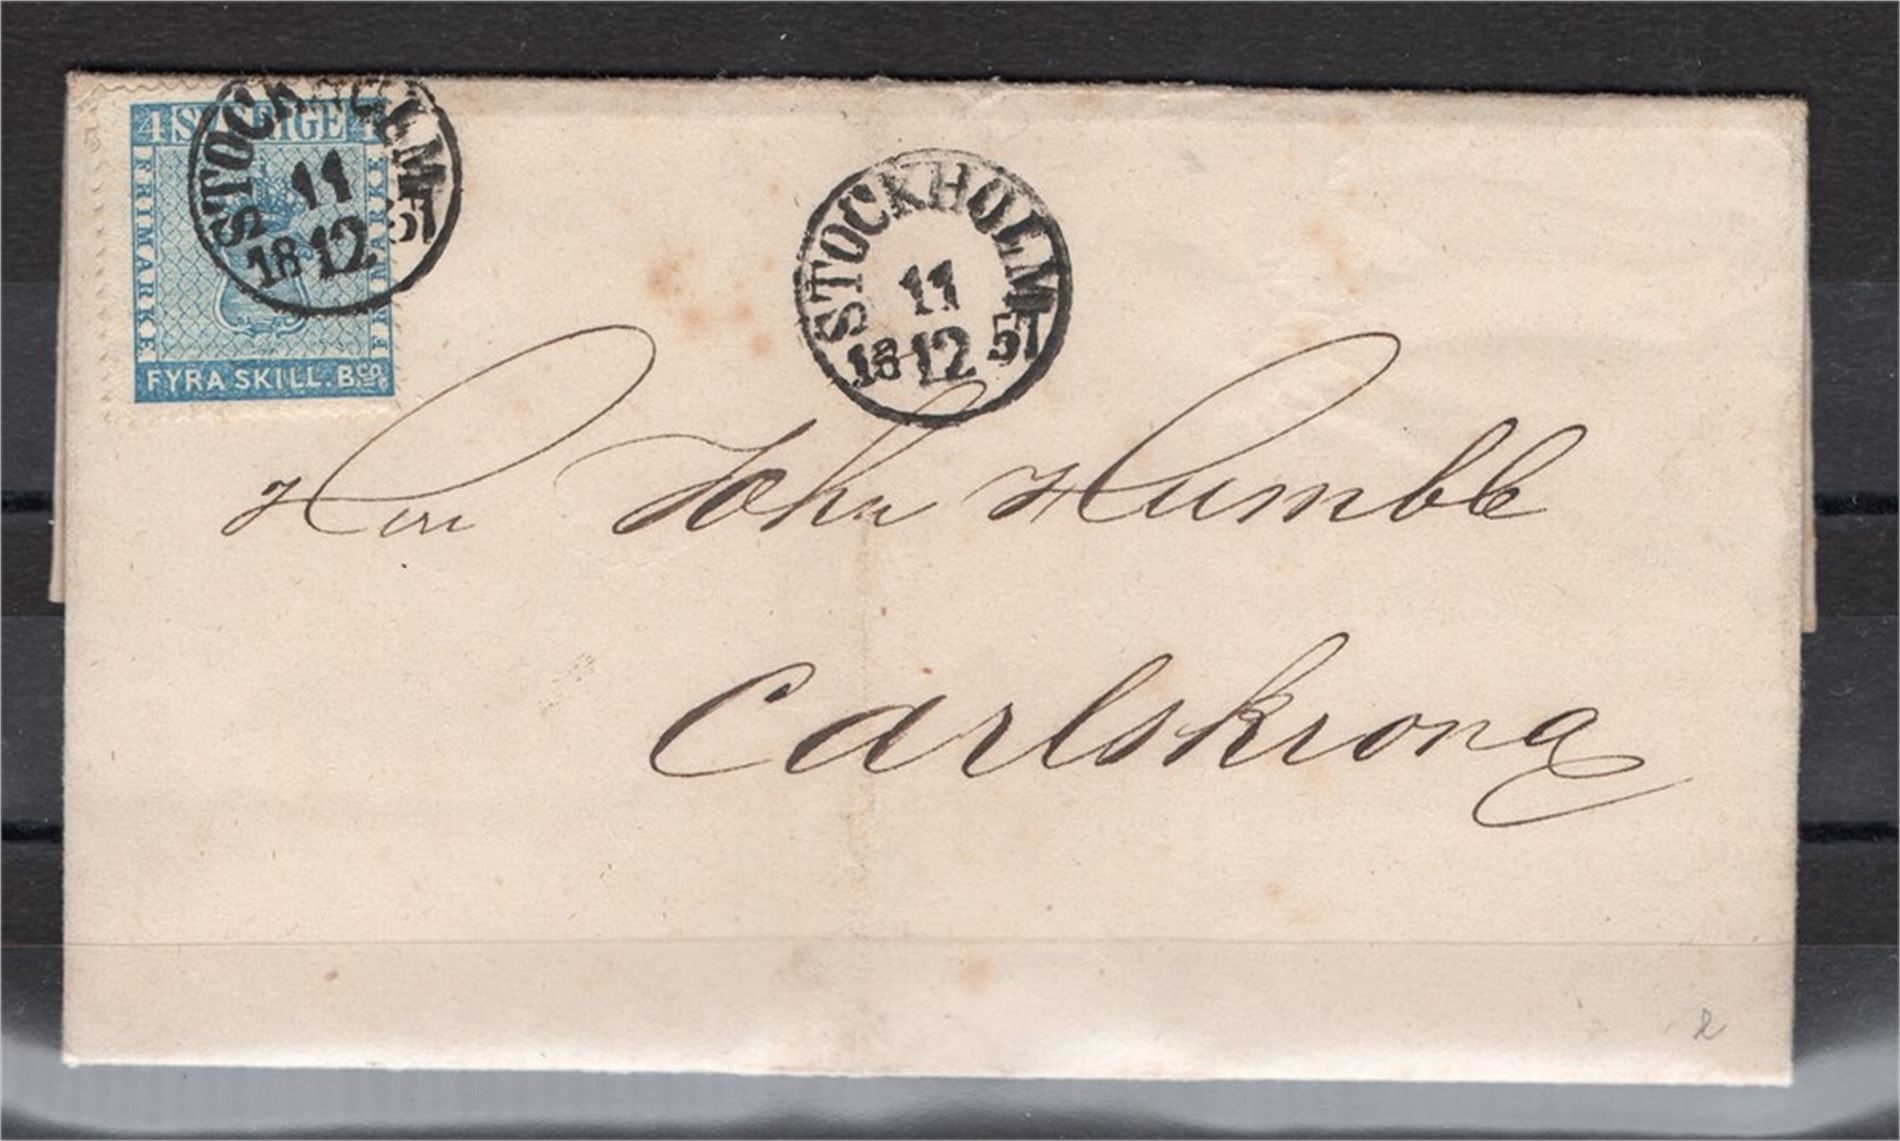 4 SVERIGE 4
FRIMARKE
FRIMARKE
FYRA SKILL. Bco.
STOCKHOLM
11
18 12 57
STOCKHOLM
11
18 12 57
Herr John Humble
Carlskrona